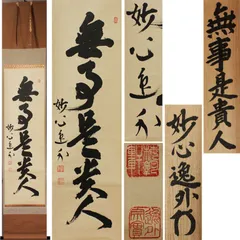 無事是貴人
妙心逸外
無事是貴人
妙心逸外
妙心逸外
無事是貴人
妙心逸外